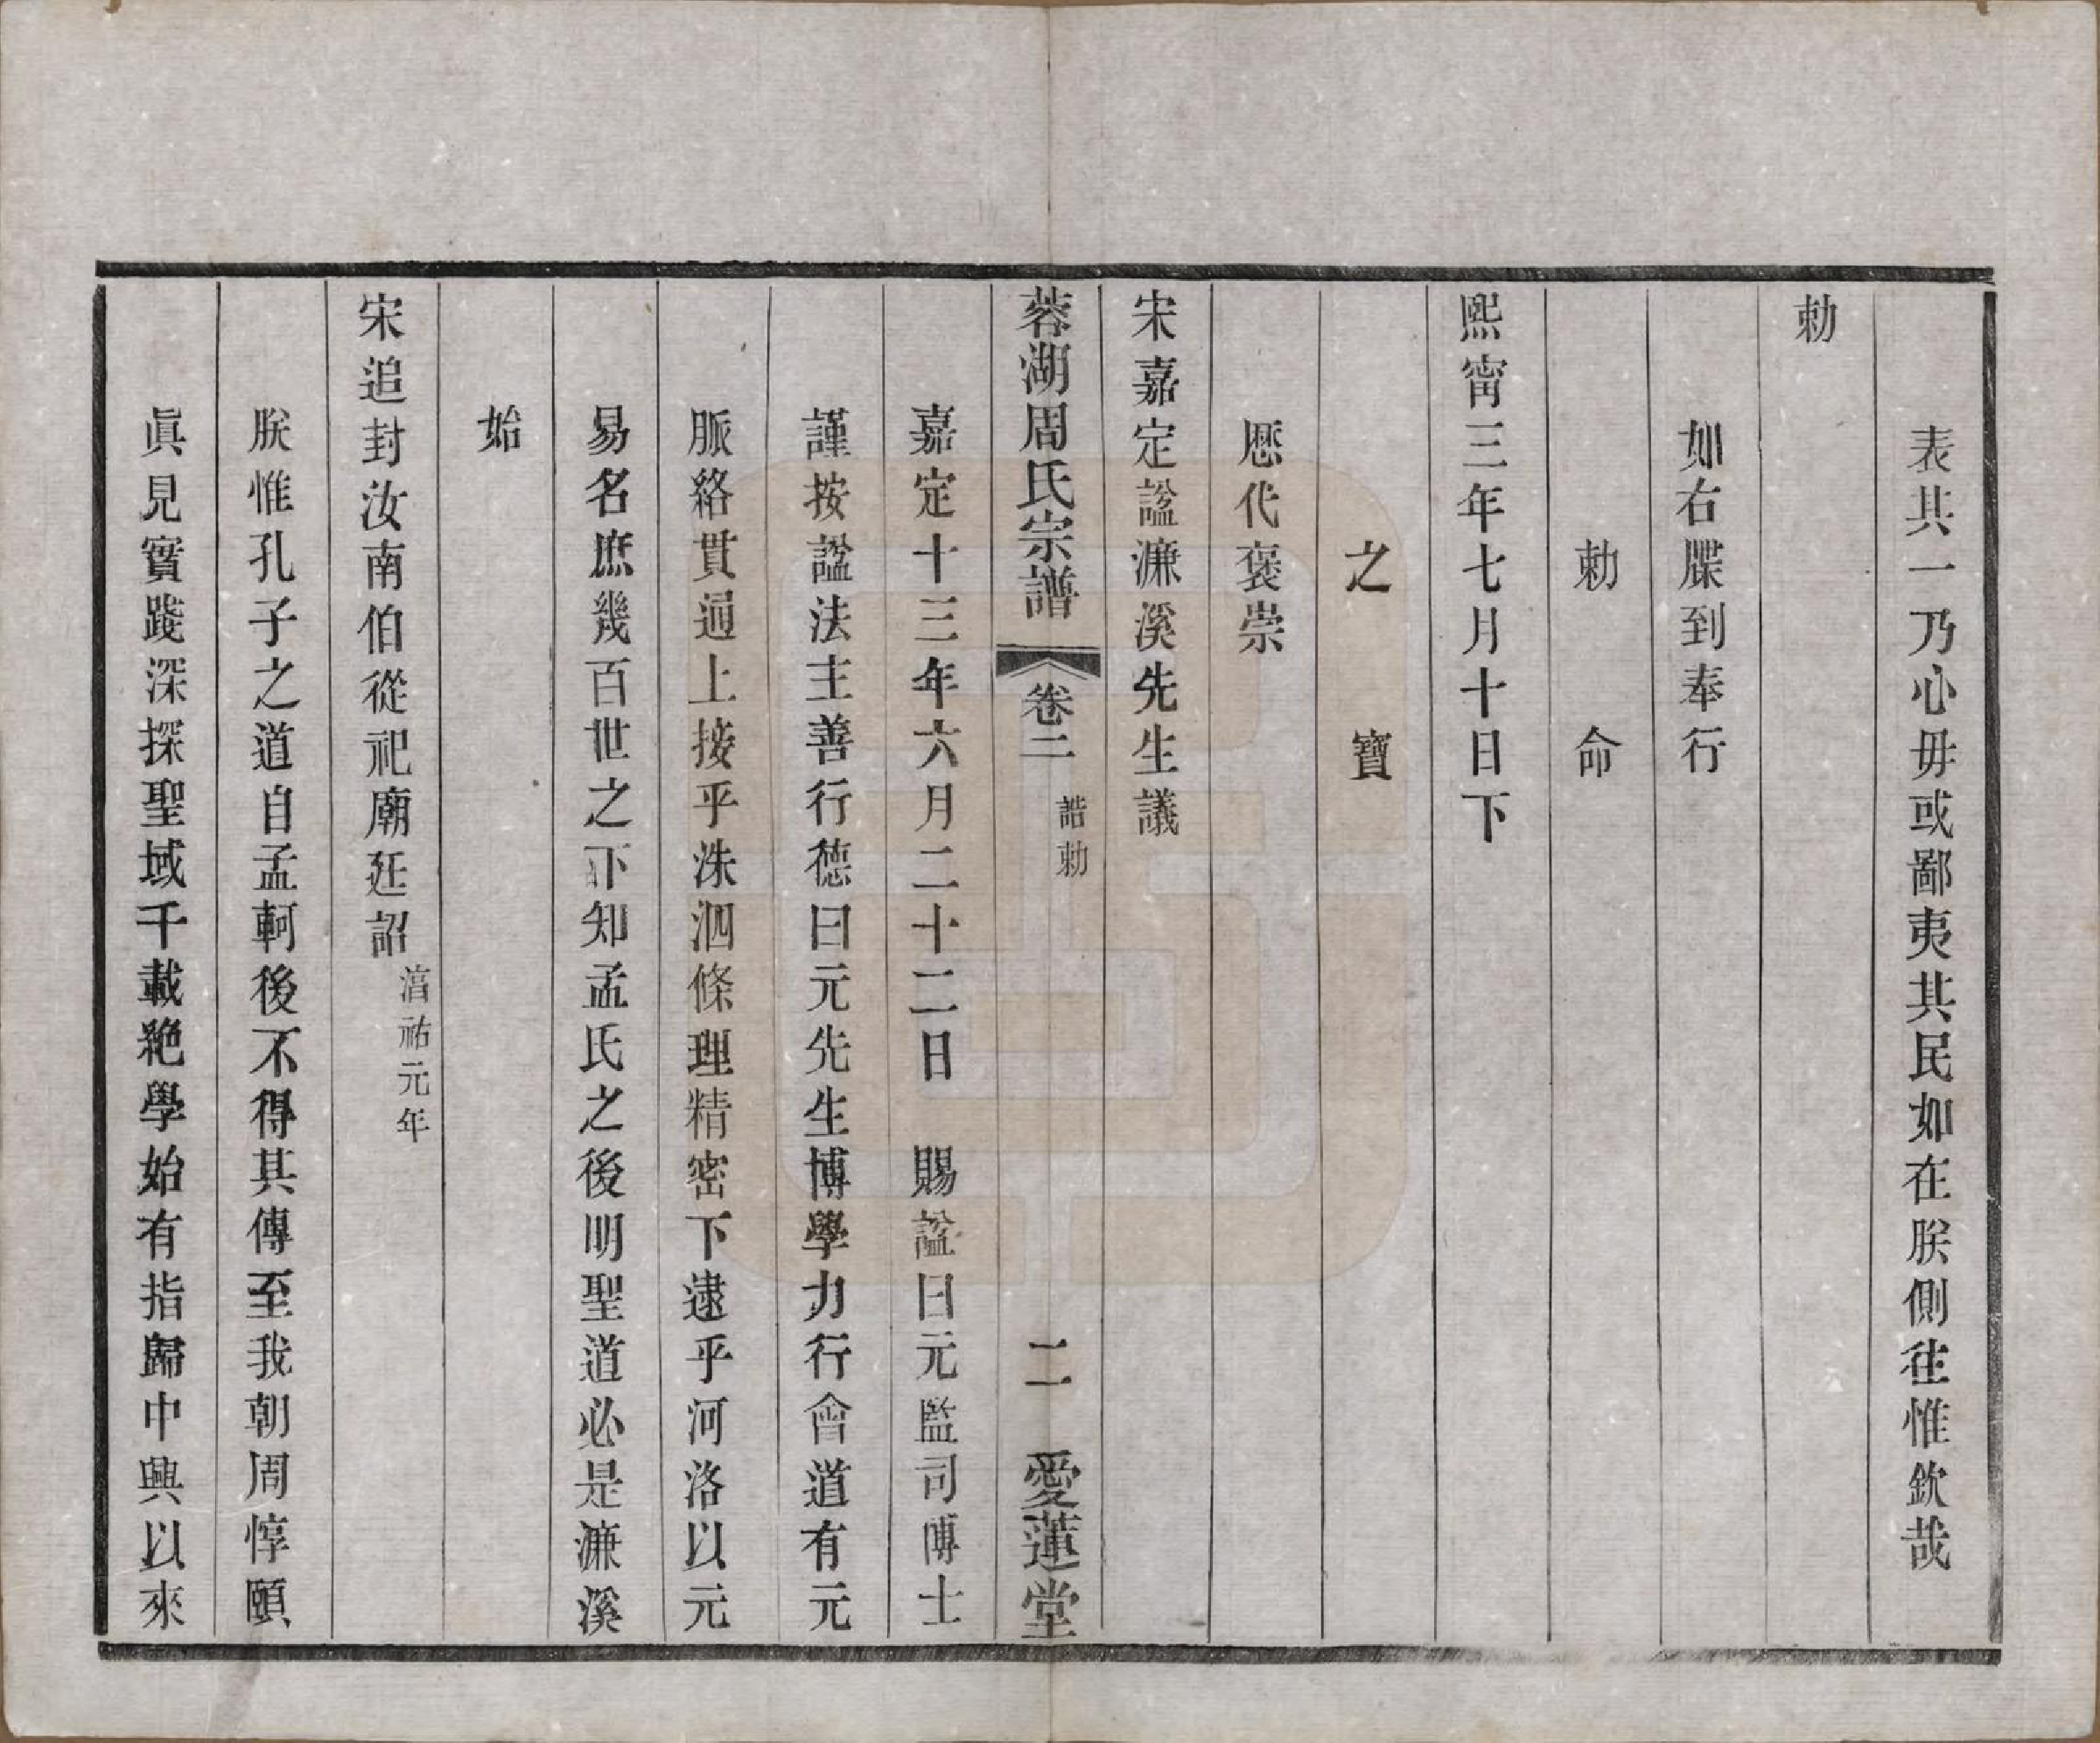 表其一乃心毋或鄙夷其民如在朕側往惟欽哉
勅
如右牒到奉行
勅命
熙甯三年七月十日下
之寶
厯代褒崇
宋嘉定諡濂溪先生議
蓉湖周氏宗譜 卷二 誥勅 二 愛蓮堂
嘉定十三年六月二十二日 賜諡曰元監司博士
謹按諡法主善行德曰元先生博學力行會道有元
脈絡貫通上接乎洙泗條理精密下逮乎河洛以元
易名庶幾百世之下知孟氏之後明聖道必是濂溪
始
宋追封汝南伯從祀廟廷詔 淳祐元年
朕惟孔子之道自孟軻後不得其傳至我朝周惇頤
眞見實踐深探聖域千載絶學始有指歸中興以來